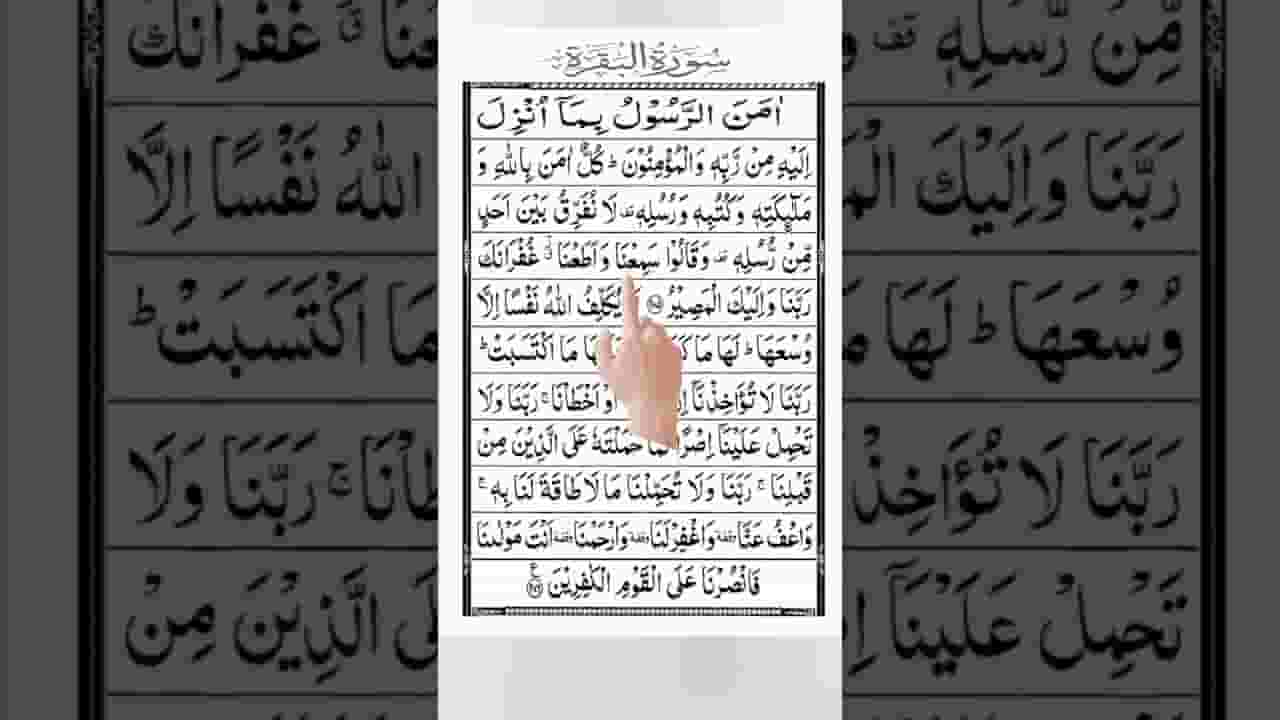 سورة البقرة
اٰمَنَ الرَّسُوْلُ بِمَاۤ اُنْزِلَ
اِلَیْهِ مِنْ رَّبِّهٖ وَالْمُؤْمِنُوْنَ ؕ كُلٌّ اٰمَنَ بِاللّٰهِ وَ
مَلٰٓىِٕكَتِهٖ وَكُتُبِهٖ وَرُسُلِهٖ قف لَا نُفَرِّقُ بَیْنَ اَحَدٍ
مِّنْ رُّسُلِهٖ قف وَقَالُوْا سَمِعْنَا وَاَطَعْنَا ق غُفْرَانَكَ
رَبَّنَا وَاِلَیْكَ الْمَصِیْرُ ۲۸۵ یُكَلِّفُ اللّٰهُ نَفْسًا اِلَّا
وُسْعَهَا ؕ لَهَا مَا مَا اكْتَسَبَتْ ؕ
رَبَّنَا لَا تُؤَاخِذْنَاۤ اَوْ اَخْطَاْنَا ۚ رَبَّنَا وَلَا
تَحْمِلْ عَلَیْنَاۤ اِصْرًا حَمَلْتَهٗ عَلَی الَّذِیْنَ مِنْ
قَبْلِنَا ۚ رَبَّنَا وَلَا تُحَمِّلْنَا مَا لَا طَاقَةَ لَنَا بِهٖ ۚ
وَاعْفُ عَنَّا وقفة وَاغْفِرْ لَنَا وقفة وَارْحَمْنَا وقفة اَنْتَ مَوْلٰىنَا
فَانْصُرْنَا عَلَی الْقَوْمِ الْكٰفِرِیْنَ ۲۸۶